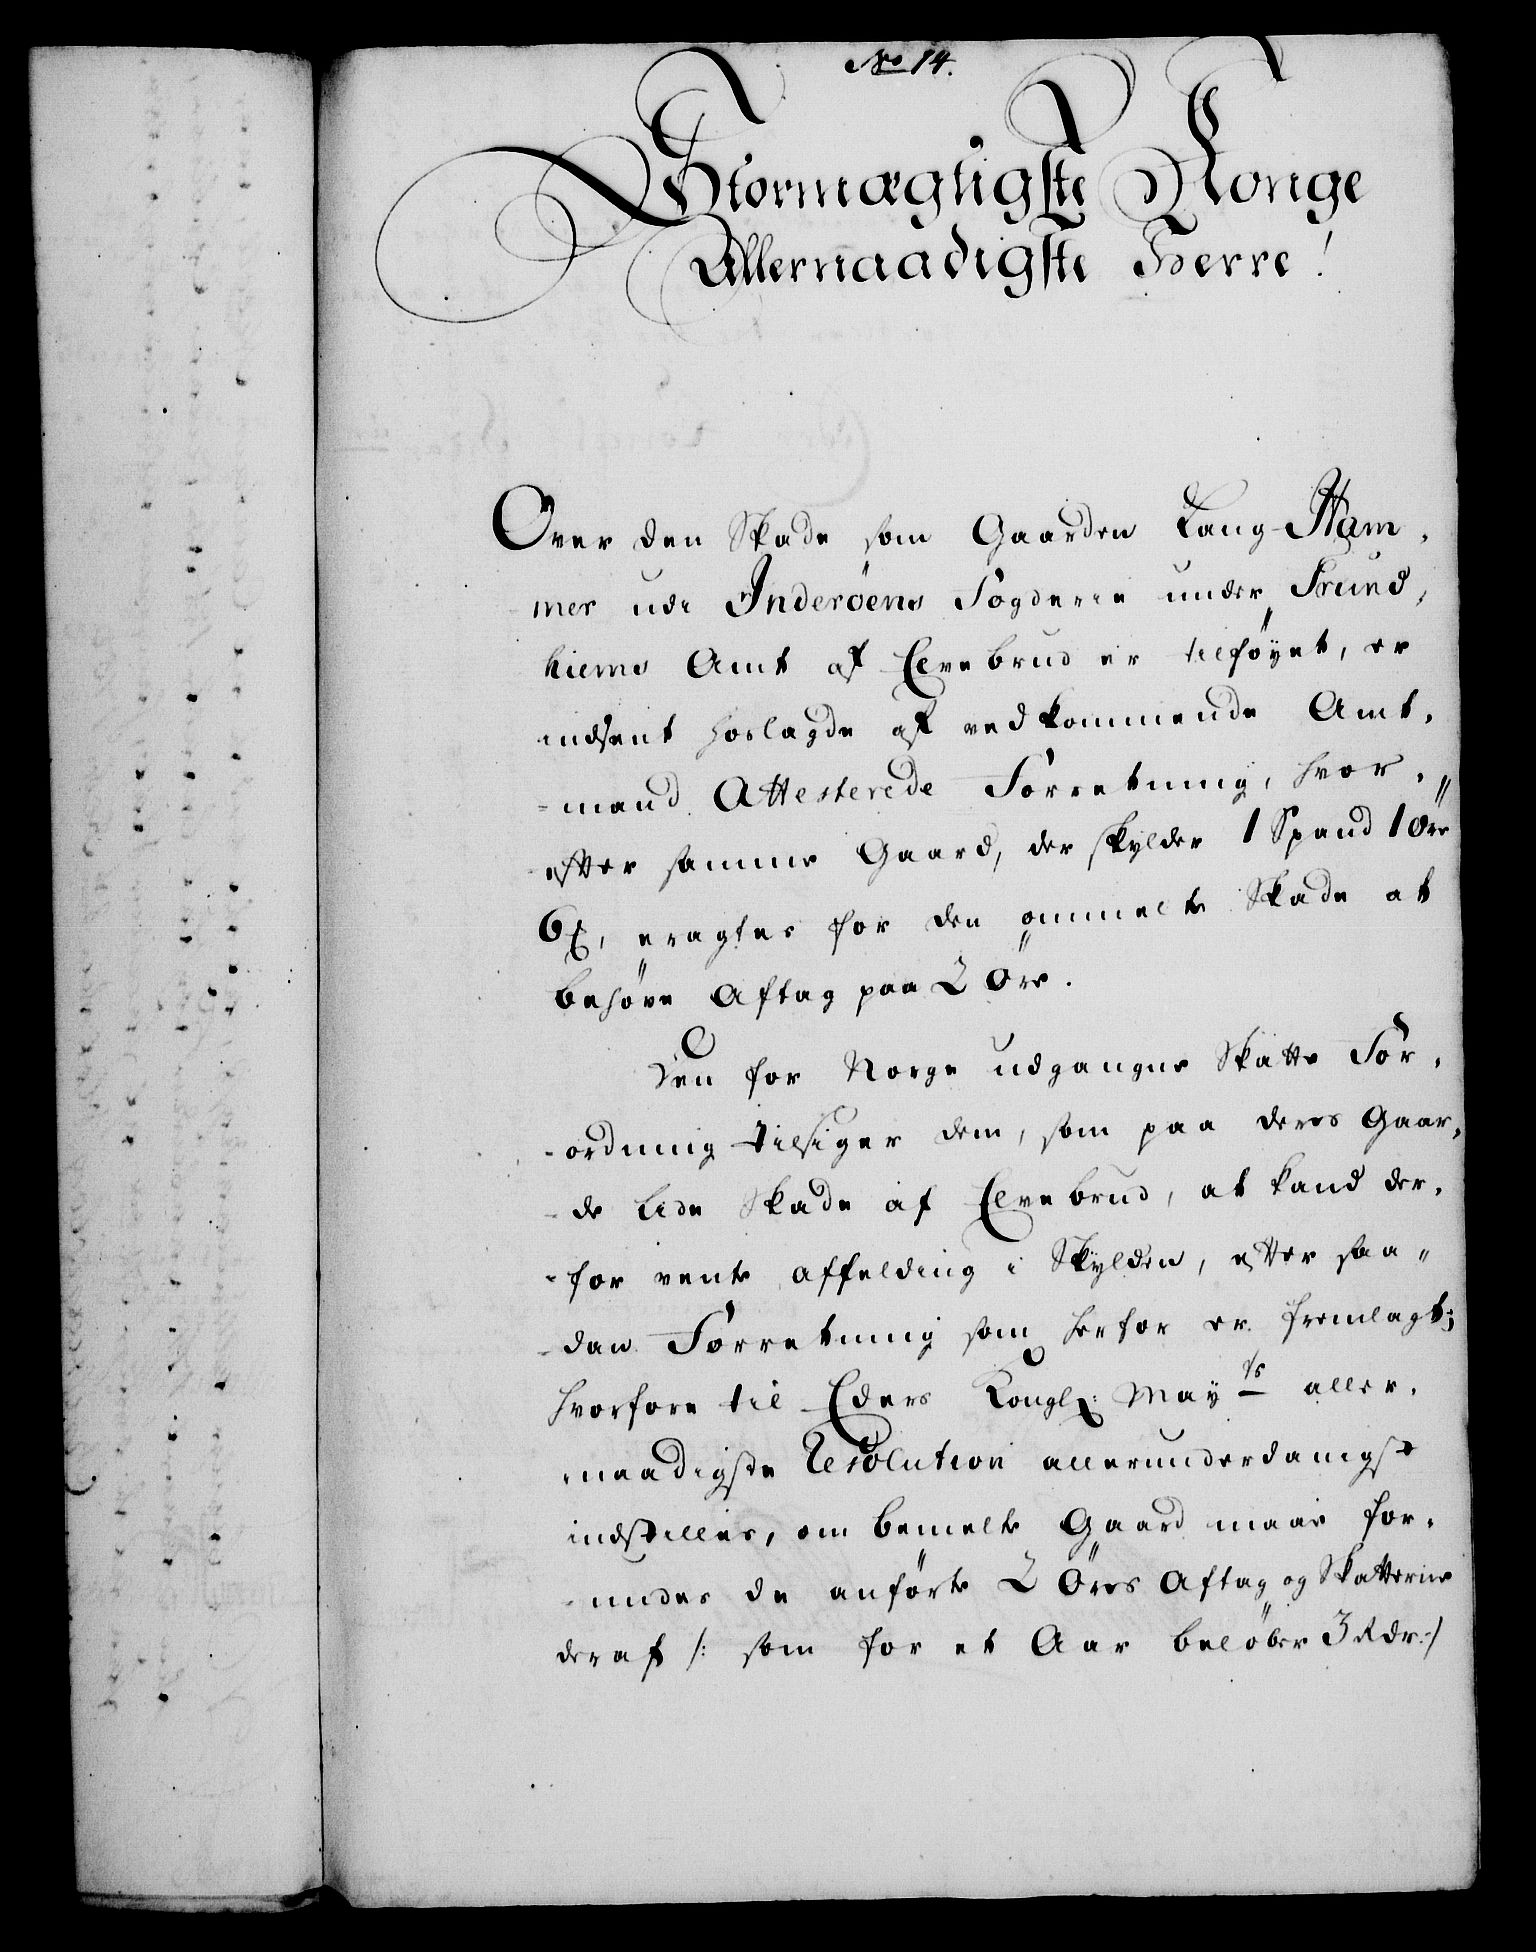 No 14.
Stormægtigste Konge
Allernaadigste Herre!
Over den Skade som Gaarden Lang-Ham,
mer udi Inderöens Fogderie under Trund,
hiems Amt af Elvebrud er tilföyet, er
indsent hoslagde af vedkommende Amt,
-mand Attesterede Forretning, hvor,,
efter samme Gaard, der skylder 1 Spand 1 Øre
6 , eragtes for den ommelte Skade at
behöve Aftag paa 2 Öre.
Den for Norge udgangne Skatte For,
-ordning tilsiger dem, som paa deres Gaar,
-de lide Skade af Elvebrud, at kand der,
-for vente affelding i Skylden, efter saa,,
-dan Forretning som herfor er fremlagt;
hvorfore til Eders Kongl: Mayts aller,
naadigste Resolution allerunderdanigst
indstilles, om bemelte Gaard maae for,
-undes de anförte 2 Öres Aftag og Skatterne
deraf /: som for et Aar belöber 3 Rdr:/